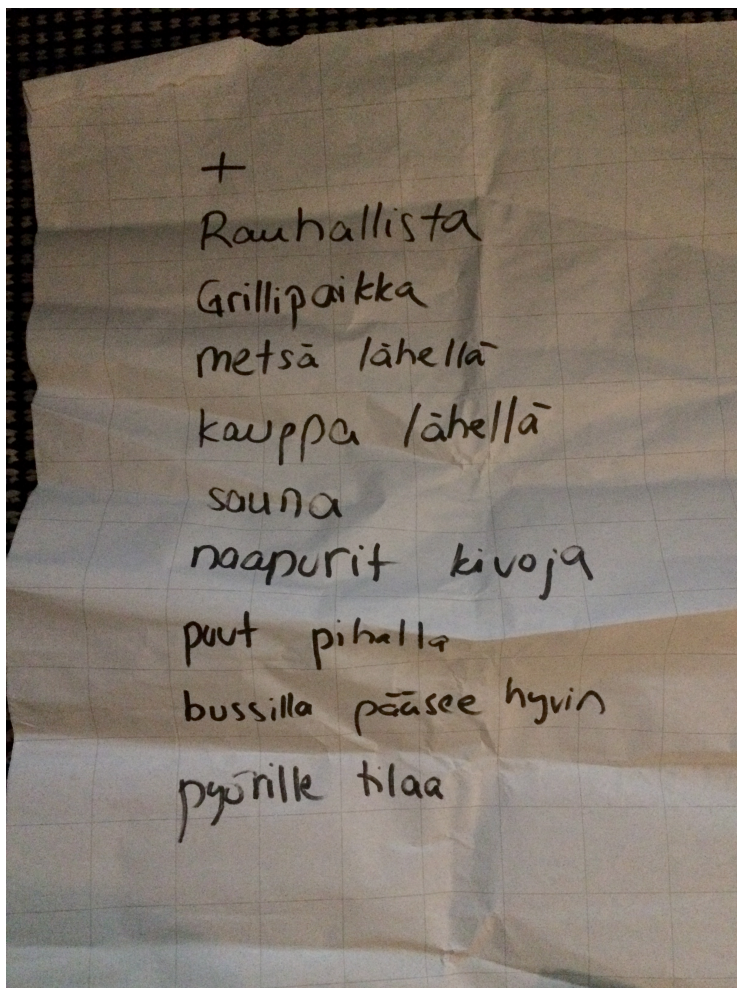 +
Rauhallista
Grillipaikka
metsä lähellä
kauppa lähellä
sauna
naapurit kivoja
puut pihalla
bussilla pääsee hyvin
pyörille tilaa